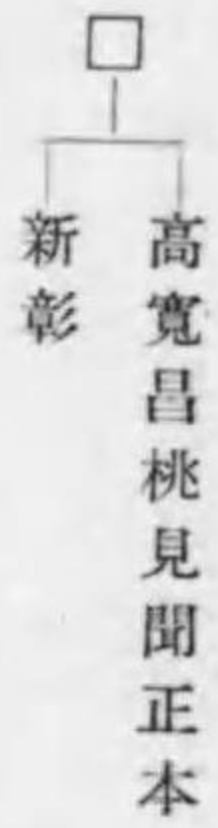 □
高寬昌桃見聞正本
新彰